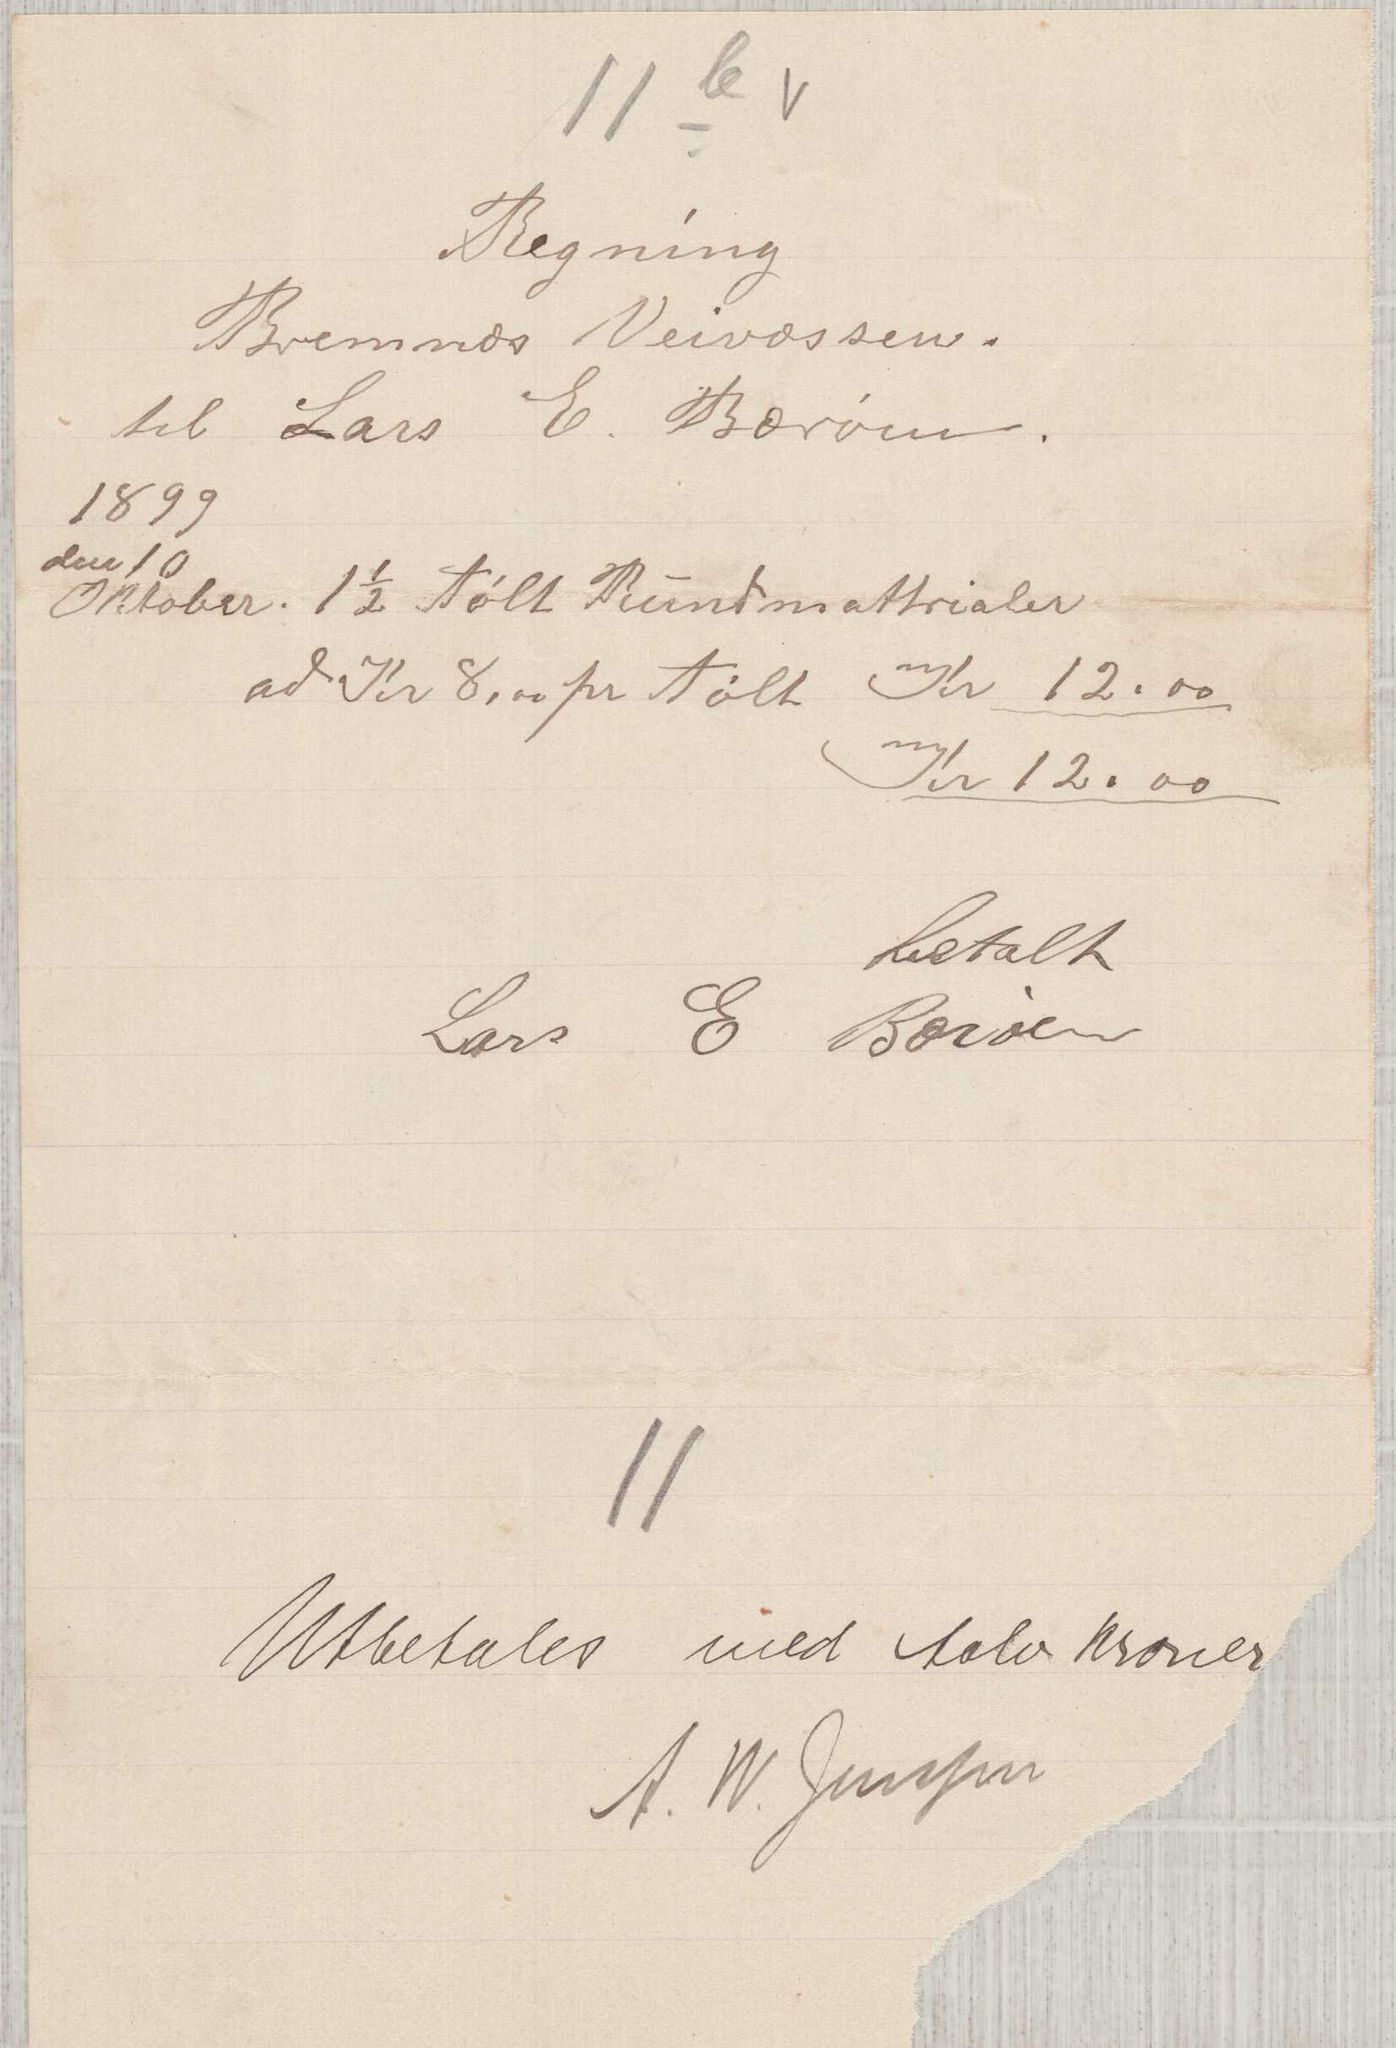 11 b v
Regning
Bremnæs Veivæssen.
til Lars E. Bærøen.
1899
den 10
Oktober. 1½ tólt Rundmattrialer
ad Kr 8,00 pr tólt Kr 12.00
Kr 12.00
betalt
Lars E Bæröen
11
Utbetales med tolv kroner
A. W. Jenssen